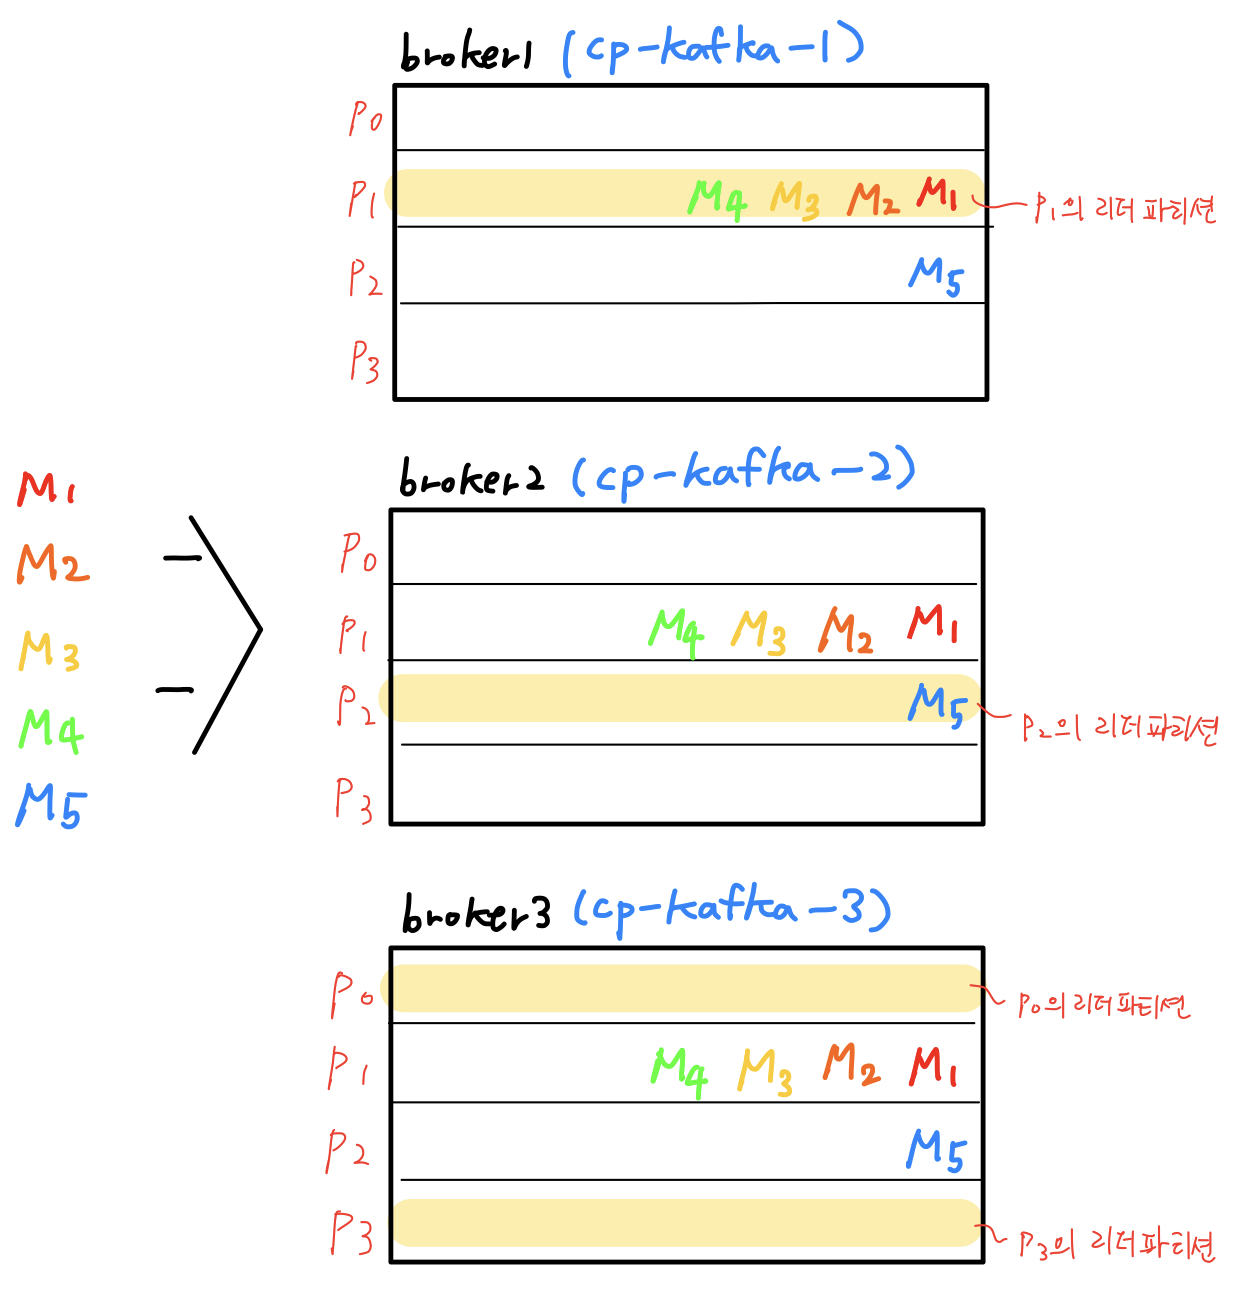 broker1 (cp-kafka-1)
P0
P1 M4 M3 M2 M1 P1의 리더 파티션
P2 M5
P3
M1
M2
M3
M4
M5
broker2 (cp-kafka-2)
P0
P1 M4 M3 M2 M1
P2 M5 P2의 리더파티션
P3
broker3 (cp-kafka-3)
P0 P0의 리더파티션
P1 M4 M3 M2 M1
P2 M5
P3 P3의 리더 파티션